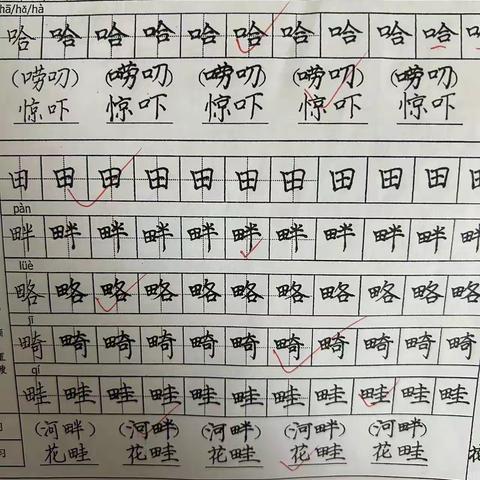 hā/hǎ/hà
哈 哈 哈 哈 哈 哈 哈 哈 哈 哈
(唠叨) (唠叨) (唠叨) (唠叨) (唠叨)
惊吓 惊吓 惊吓 惊吓 惊吓
田 田 田 田 田 田 田 田 田 田 田
pàn
畔 畔 畔 畔 畔 畔 畔 畔 畔 畔 畔
lüè
略 略 略 略 略 略 略 略 略 略 略
jī
畸 畸 畸 畸 畸 畸 畸 畸 畸 畸 畸
qí
畦 畦 畦 畦 畦 畦 畦 畦 畦 畦 畦
(河畔) (河畔) (河畔) (河畔) (河畔)
花畦 花畦 花畦 花畦 花畦